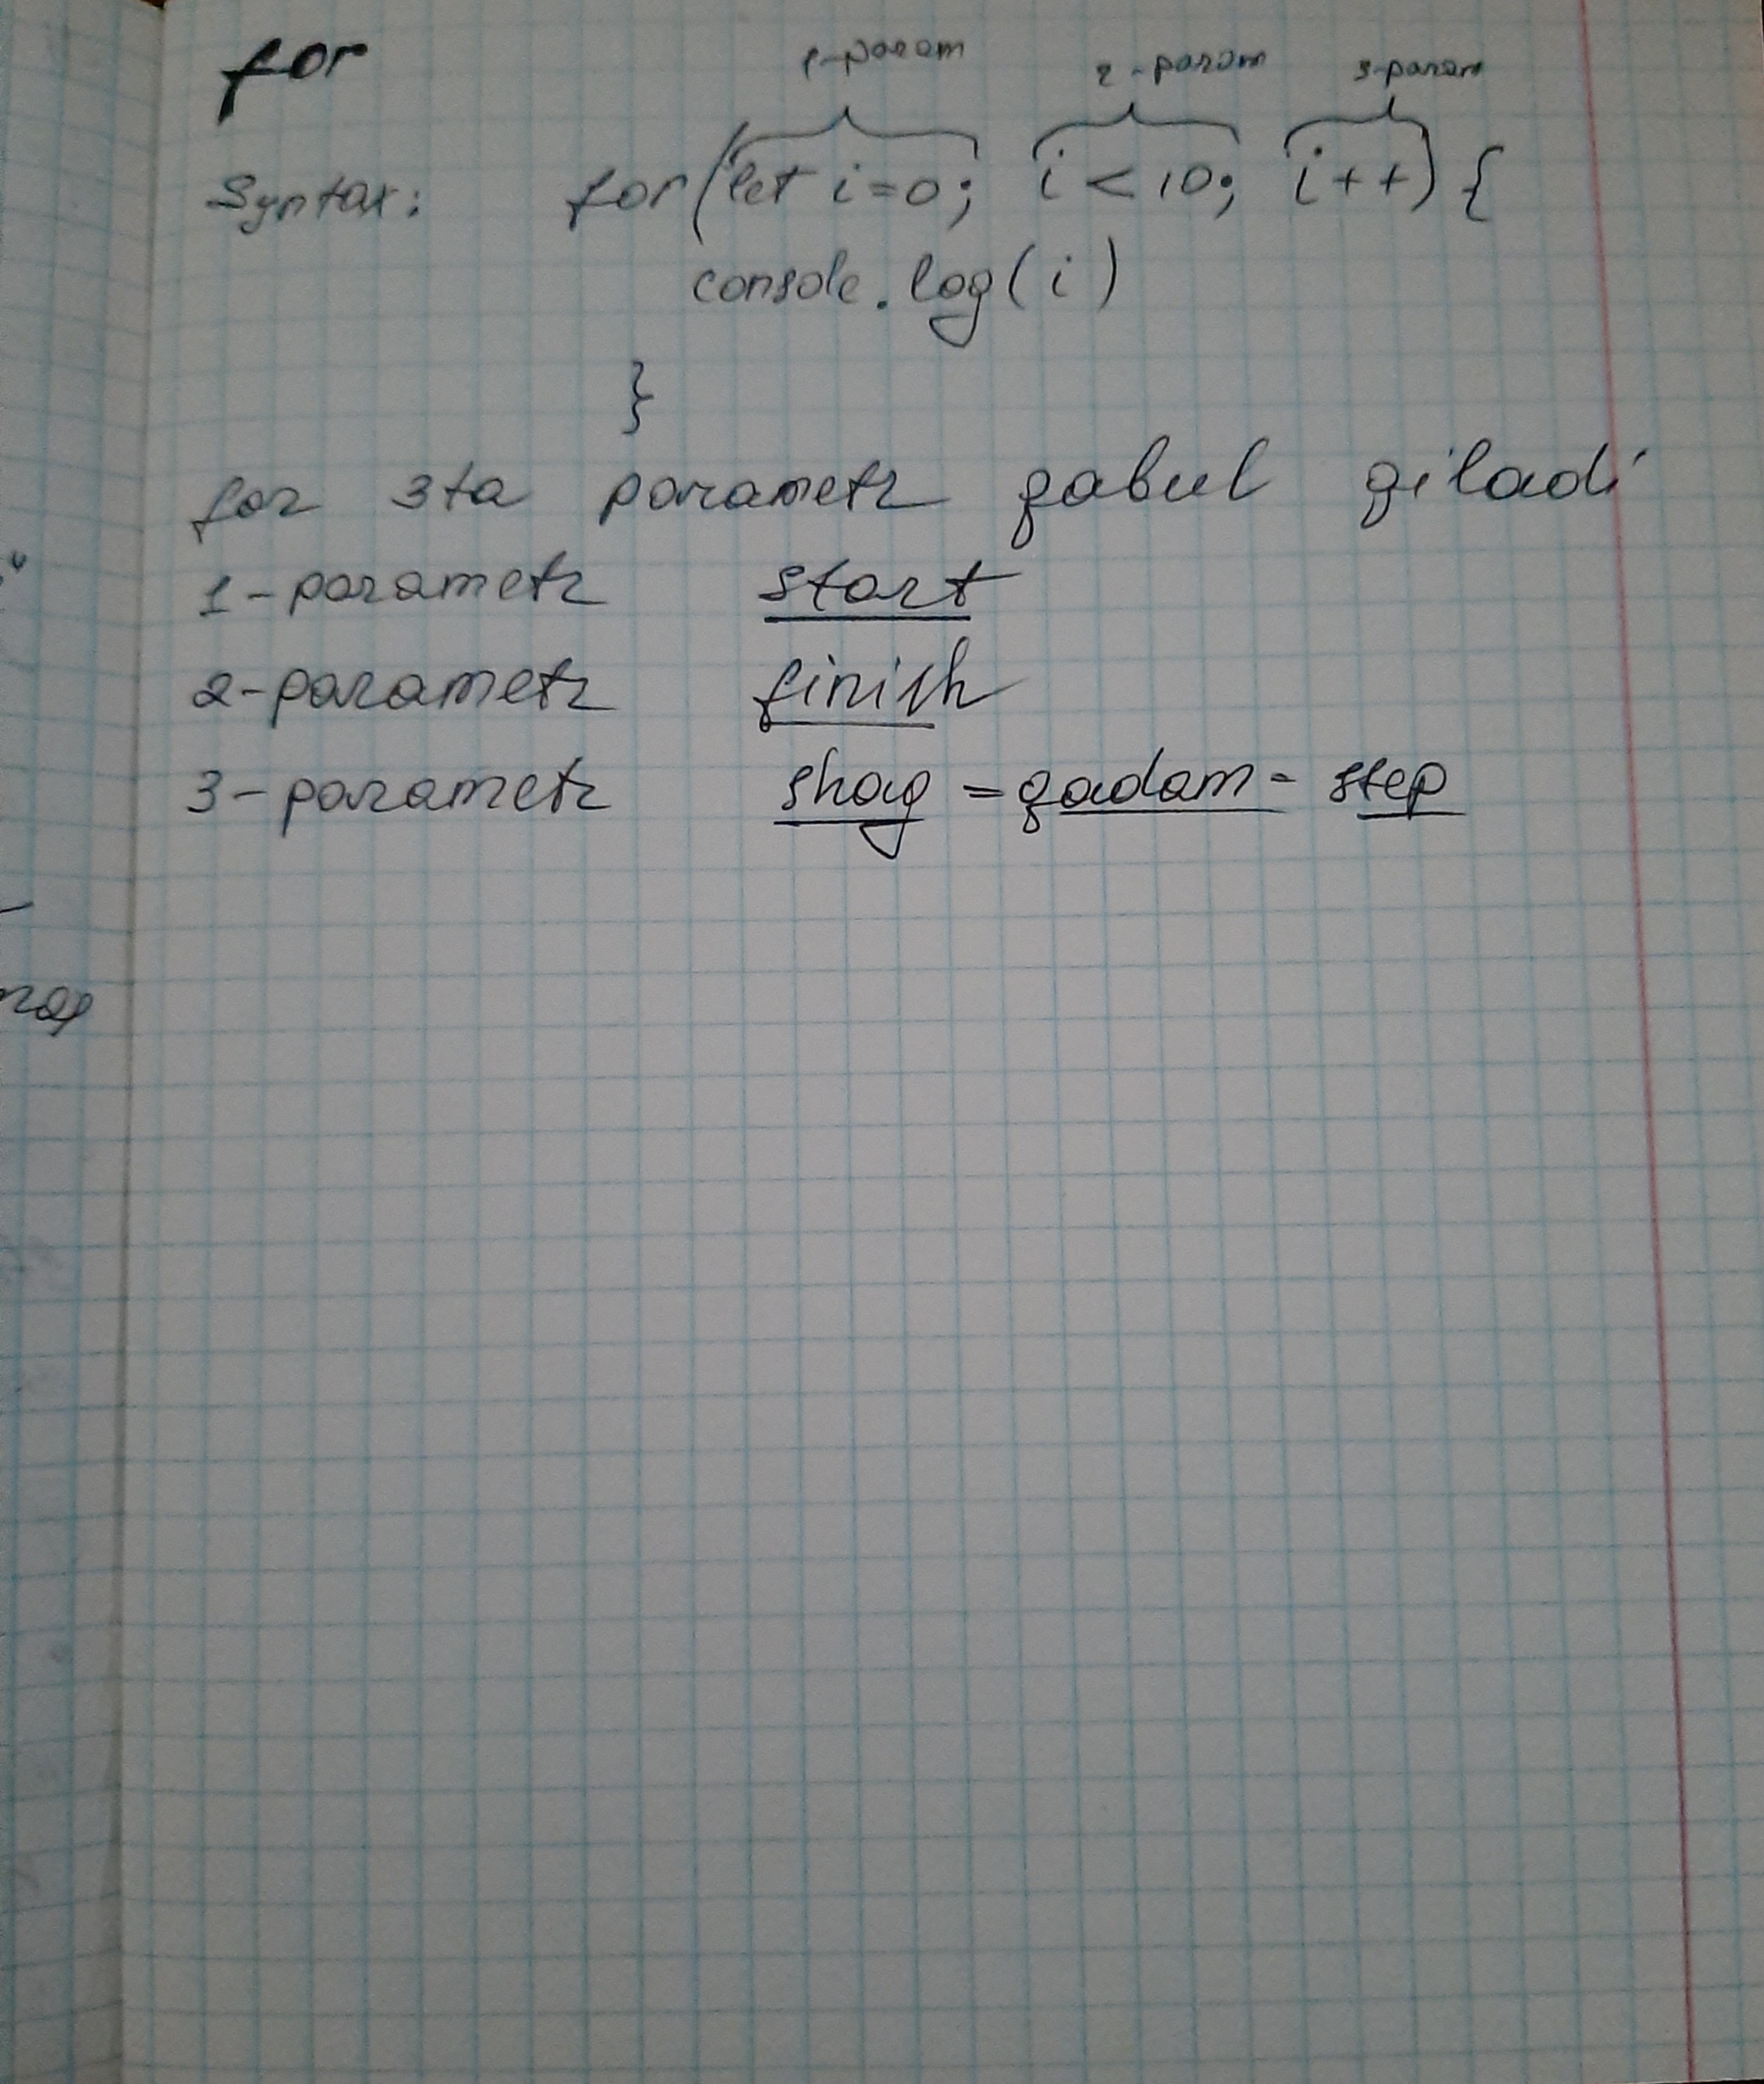 for
1-param 2-param 3-param
Syntax: for(let i=0; i<10; i++){
console.log(i)
}
for 3ta parametr qabul qiladi
1-parametr start
2-parametr finish
3-parametr shag = qadam - step